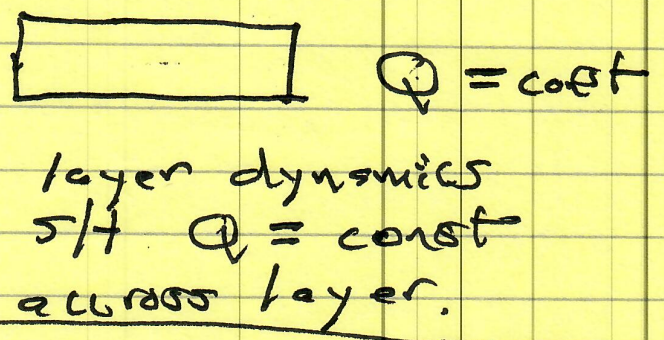 Q = const
layer dynamics
s/t Q = const
accross layer.